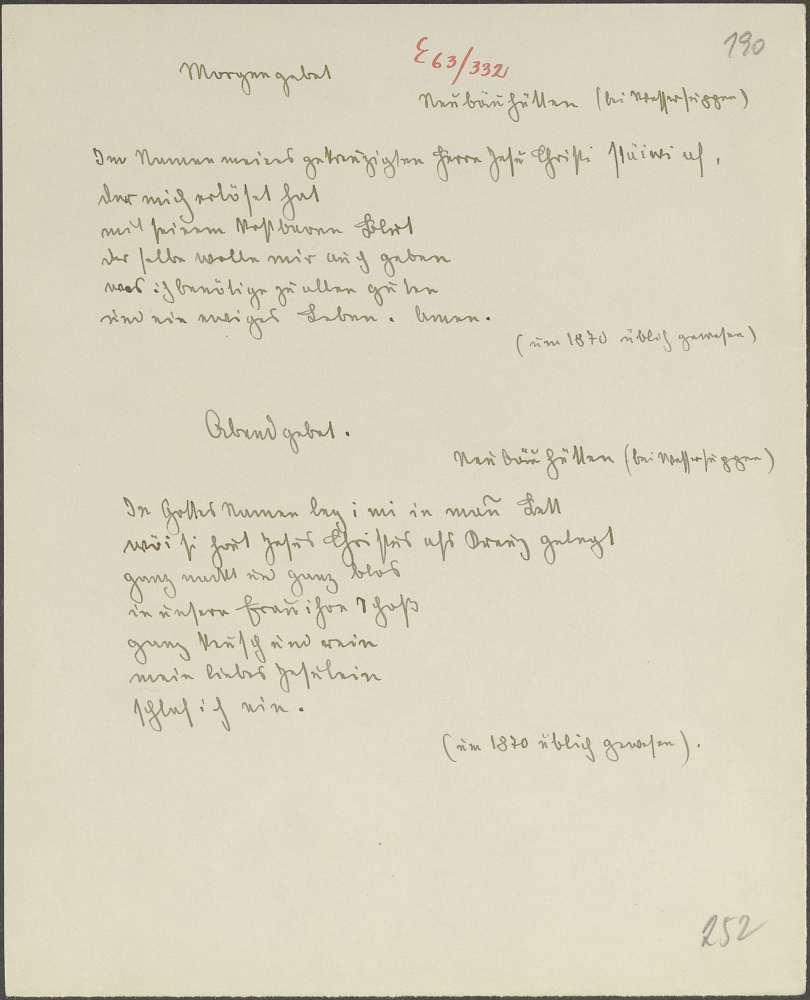 190
E 63/332
Morgengebet
Neubäuhütten (bei Wassersuppen)
Im Namen meines gekreuzigten Herrn Jesu Christi stäiwi af,
der mich erlöset hat
mit seinem kostbaren Blut
der selbe wolle mir auch geben
was ich benötige zu allen guten
und ein ewiges Leben. Amen.
(um 1870 üblich gewesen)
Abendgebet.
Neubäuhütten (bei Wassersuppen)
In Gottes Namen leg i mi in mañ Bett
wöi si hout Jesus Christus afs Kreuz gelegt
ganz nackt und ganz blos
in unsere Frau ihre Schoß
ganz keusch und rein
mein liebes Jesulein
schlaf ich ein.
(um 1870 üblich gewesen).
252